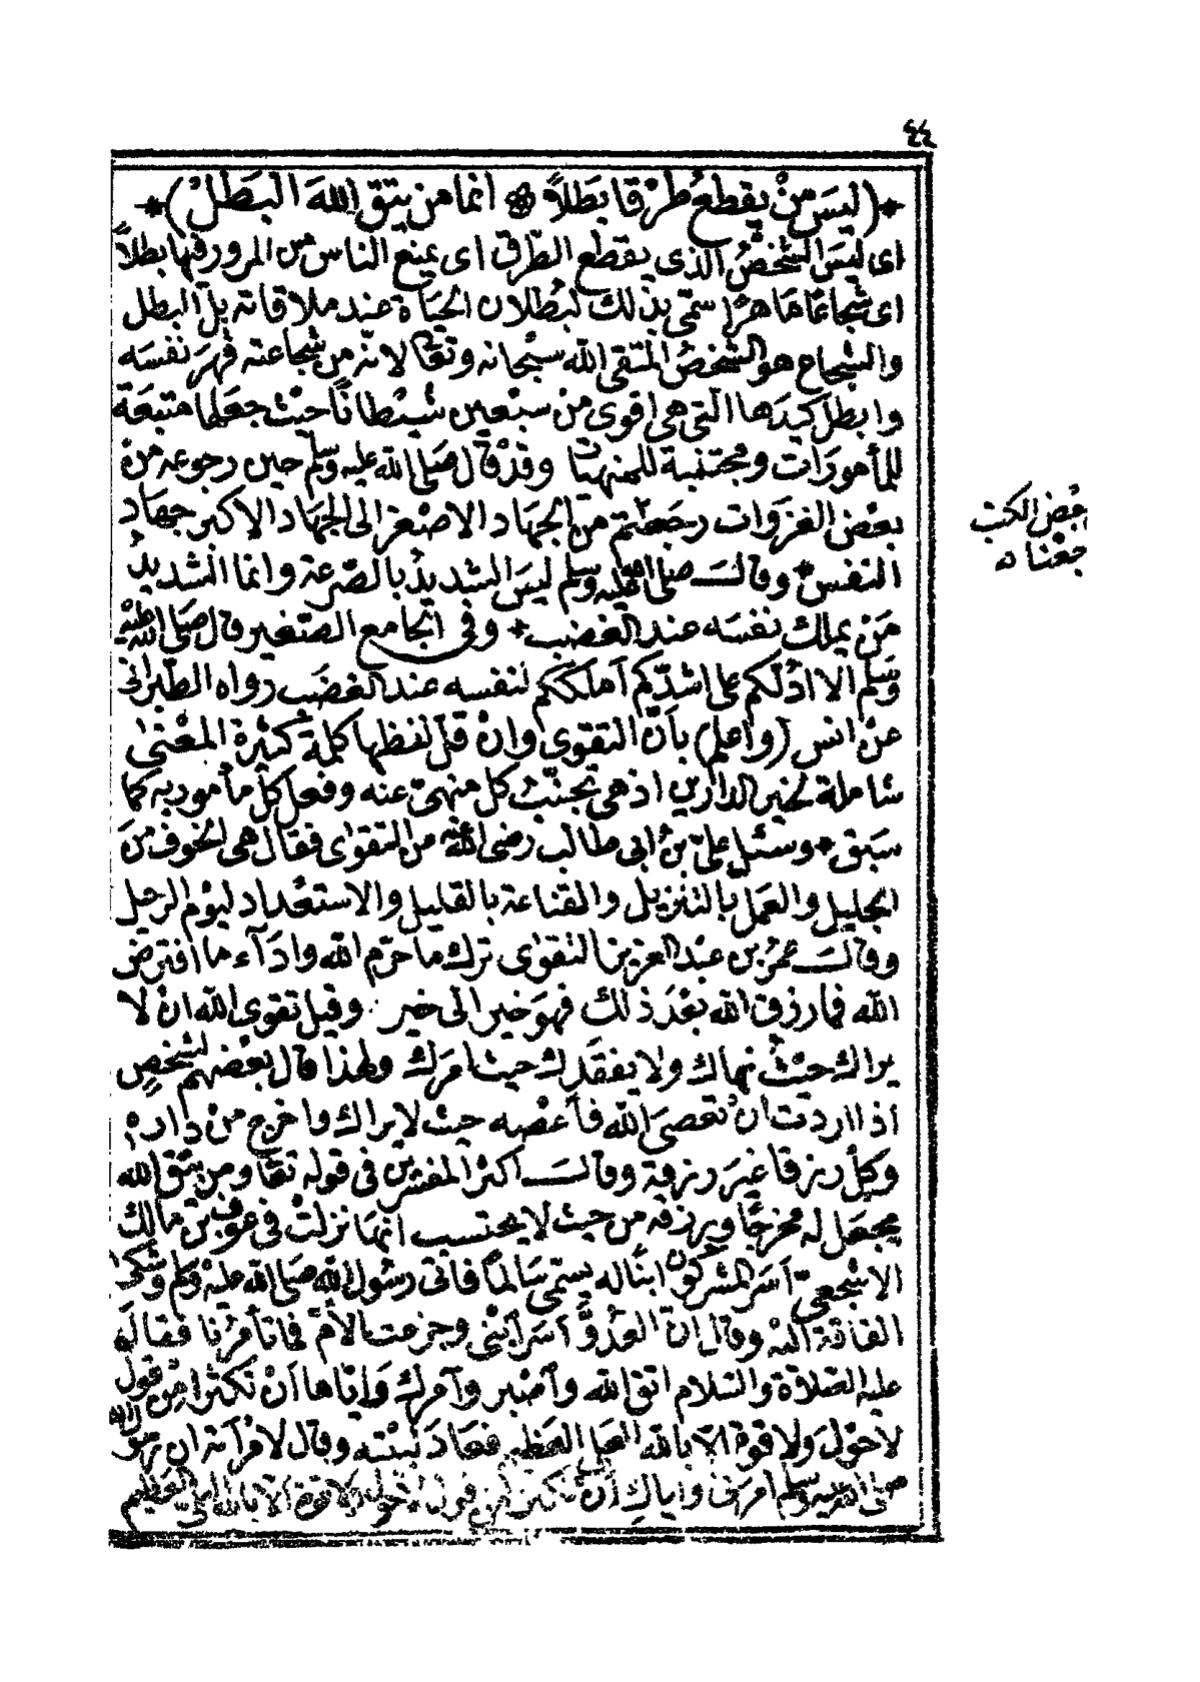 ٤٤
*(ليسَ منْ يقطعُ طرْقا بَطَلاً ۞ انما من يتق اللهَ البَطَلْ)*
اى ليسَ الشخصُ الذى يقطع الطرق اى يمنع الناس من المرور فيها بطلاً
اى شجاعًا ماهرًا سمّى بذلك لبُطلان الحيَاة عند ملاقاته بل البطل
والشجاع هو الشخصُ المتقى الله سبحانه وتعا لانه من شجاعته قهرَ نفسَه
وابطل كيدَها التى هى اقوى من سبْعين شيْطانًا حيْث جعلها متبعَة
للمأمورَات ومجتنبة للمنهيات وقدْ قال صَلى الله عليه وسلم حين رجوعه منْ
بعْض الغزَوات رجَعتم منَ الجهَاد الاصْغر الى الجهَاد الاكبر جهاد
النفس * وقالـــ صلى الله عليه وسلم ليسَ الشديدُ بالصّرعة وانما الشديد
مَنْ يملك نفسَه عند الغضب * وفى الجامع الصّغير قال صَلى الله عليْه
وَسَلم الا ادُلكم على اشدّكم أملككم لنفسه عند الغضَب رواه الطبرانى
عنْ انس (واعلم) بأنّ التقوى وانْ قلّ لفظها كلمةٌ كثيْرة المعْنى
شاملة لخير الدارين اذ هى تجنّب كل منهىّ عنه وفعل كلّ مأمور به كما
سَبق * وسئل علىّ بنُ ابى طالب رضى الله عنْه من التقوى فقال هى الخوف منَ
الجليل والعَمل بالتنزيل والقناعة بالقليل والاستعْداد ليوْم الرحيل
وقالـــ عمرُ بن عبْد العزيز التقوى ترك ما حرّم الله وادَآء ما افترض
الله فما رزق الله بعْدَ ذلك فهوَ خير الى خير . وقيل تقوى الله انْ لا
يراك حيْثُ نهاك ولا يفقدَك حيث امَرك ولهذا قال بعْضهم لشخصٍ
اذا اردت انْ تعصىَ الله فاعْصِه حيْث لا يراك واخرج منْ داره
وَكلْ رزقا غيرَ رزقه وقالـــ اكثرُ المفسّرين فى قوله تعَا ومن يتّق الله
يجعَل له مخرجًا ويرزقه من حيث لا يحتسب انهَا نزلتْ فى عوْف بن مالك
الاشجعى أسَر المشركون ابنًا له يسمّى سَالمًا فاتى رسُول الله صَلى الله عليْه وَسلم وشكى
الفاقة اليْه وقال انّ العَدُوَّ أسَر ابْنى وجزعت الأمّ فما تأمرُنا فقال له
عليه الصَّلاة والسَّلام اتق الله وأصْبر وآمرك وَايّاها أنْ تكثرا مِنْ قول
لا حَوْلَ ولا قوة الا بالله العلى العظيم فعَادَ لبيْته وقال لامْرأته ان رسُول الله
صلى الله عليه وسلم امرَنى وايّاكِ أنْ نكثر منْ قول لا حول ولا قوة الا بالله العلىّ العَظيم
بعْض الكتب
جعْنا ه